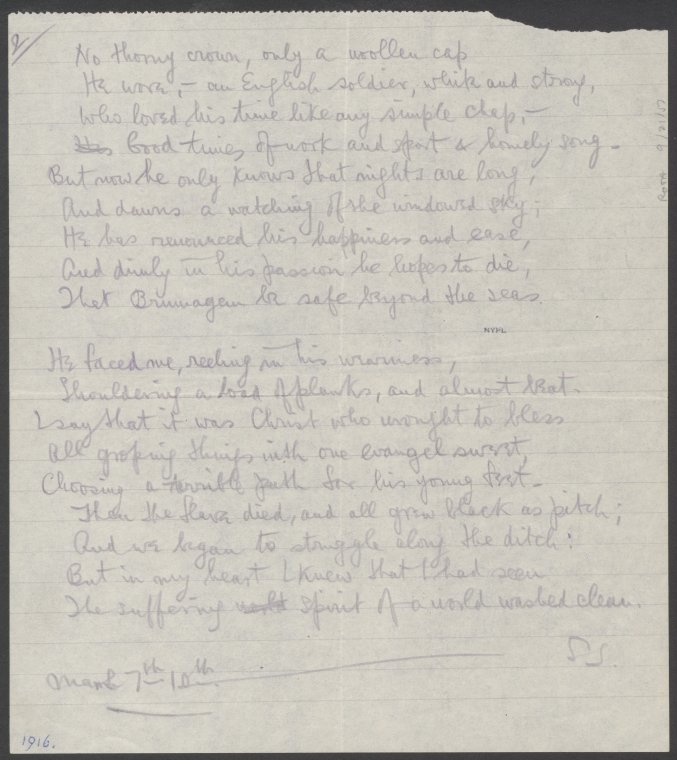 2/
No thorny crown, only a woollen cap
He wore, – an English soldier, white and strong,
Who loved his time like any simple chap, –
His Good times of work and sport & homely song –
But now he only knows that nights are long,
And dawns a watching of the windowed sky;
He has renounced his happiness and ease,
And dimly in his passion he hopes to die,
That Brumagem be safe beyond the seas.
NYPL
He faced me, reeling in his weariness,
Shouldering a load of planks, and almost beat.
I say that it was Christ who wrought to bless
All groping things with one evangel sweet,
Choosing a terrible path for his young feet –
Then the flare died, and all grew black as pitch;
And we began to struggle along the ditch:
But in my heart I knew that I had seen
The suffering spirit of a world washed clean.
S.S.
March 7th 10th
1916.